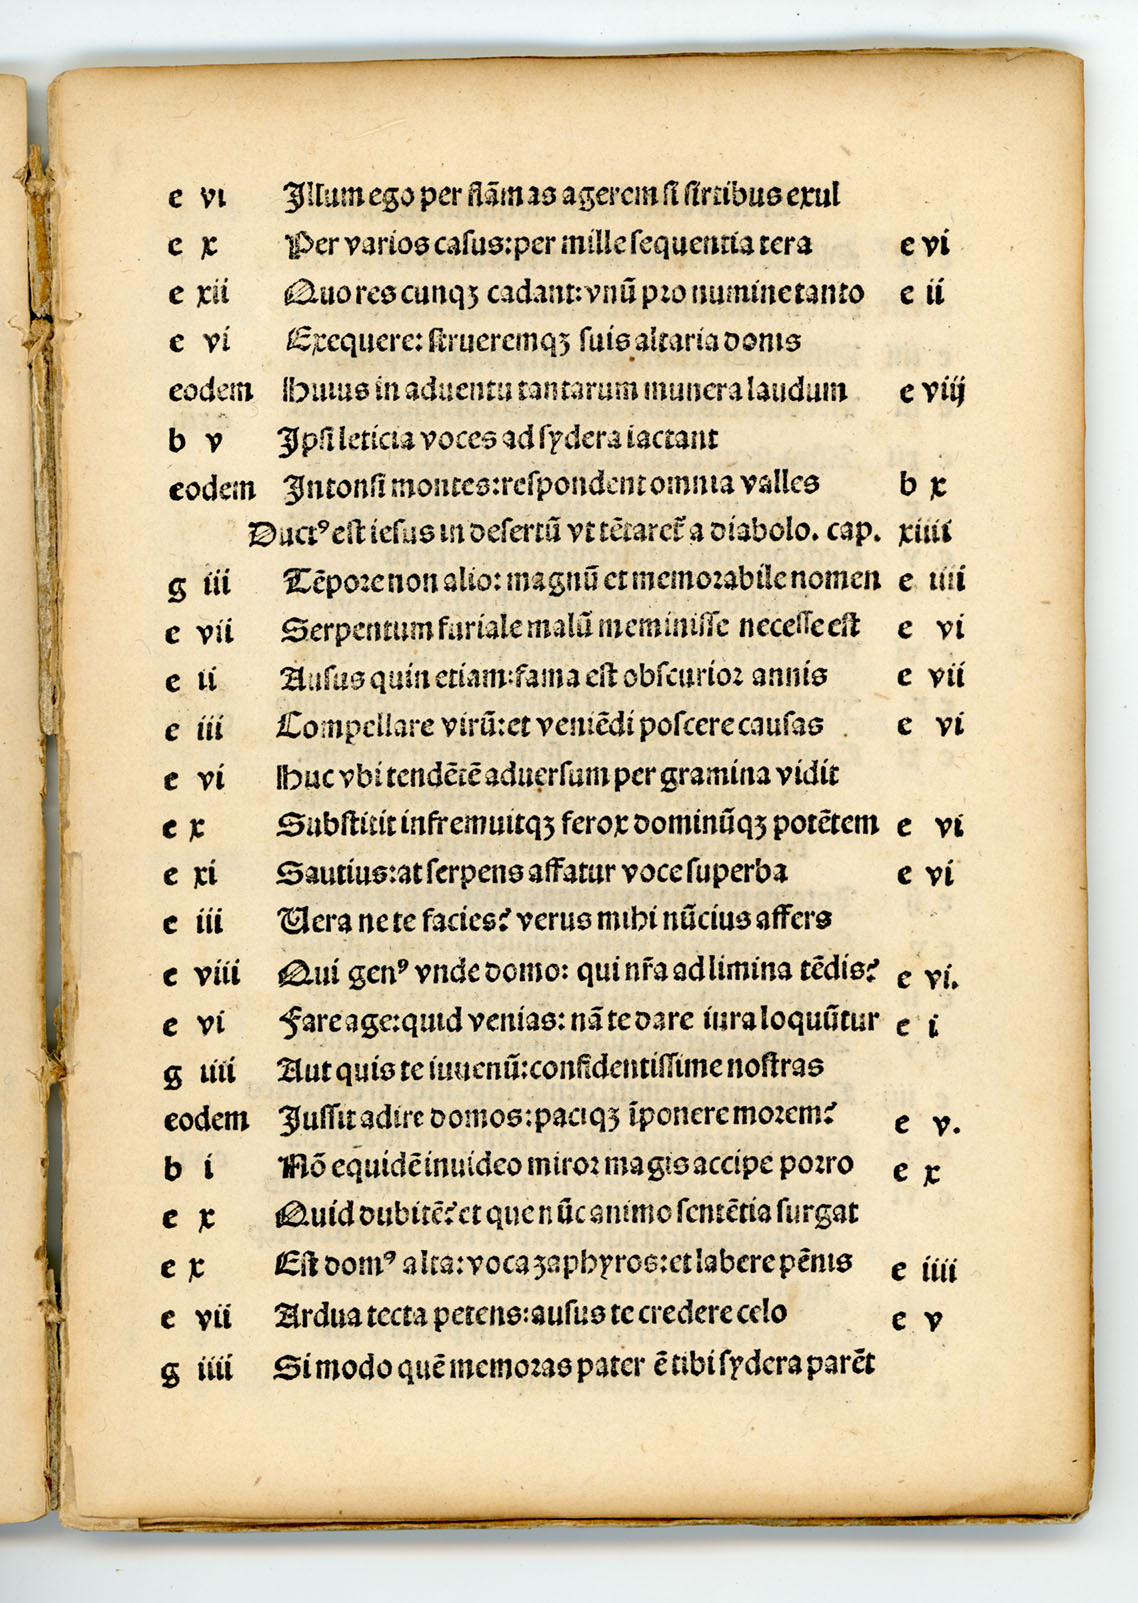 e vi Illum ego per flām as agerem si sirtibus exul
e x Per varios casus: per mille sequentia tera e vi
e xii Quo res cunqꝫ cadant: vnū pro numine tanto e ii
e vi Exequere: strueremqꝫ suis altaria donis
eodem Huius in aduentu tantarum munera laudum e viij
b v Ipsi leticia voces ad sydera iactant
eodem Intonsi montes: respondent omnia valles b x
Ductꝰ est iesus in desertū vt tētaret᷑ a diabolo. cap. xiiii
g iii Tēpore non alio: magnū et memorabile nomen e iiii
e vii Serpentum furiale malū meminisse necesse est e vi
e ii Ausus quin etiam: fama est obscurior annis e vii
e iii Compellare virū: et veniēdi poscere causas e vi
e vi Huc vbi tendētē aduersum per gramina vidit
e x Substitit infremuitqꝫ ferox dominūqꝫ potētem e vi
e xi Sautius: at serpens affatur voce superba e vi
e iii Uera ne te facies? verus mihi nūcius affers
e viii Qui genꝰ vnde domo: qui nr̄a ad limina tēdis? e vi.
e vi Fare age: quid venias: nā te dare iura loquūtur e i
g iiii Aut quis te iuuenū: confidentissime nostras
eodem Iussit adire domos: paciqꝫ īponere morem? e v.
b i Nō equidē inuideo miror magis accipe porro e x
e x Quid dubitē? et que nūc animo sentētia surgat
e x Est domꝰ alta: voca zaphyros: et labere pēnis e iiii
e vii Ardua tecta petens: ausus te credere celo e v
g iiii Si modo quē memoras pater ē tibi sydera parēt